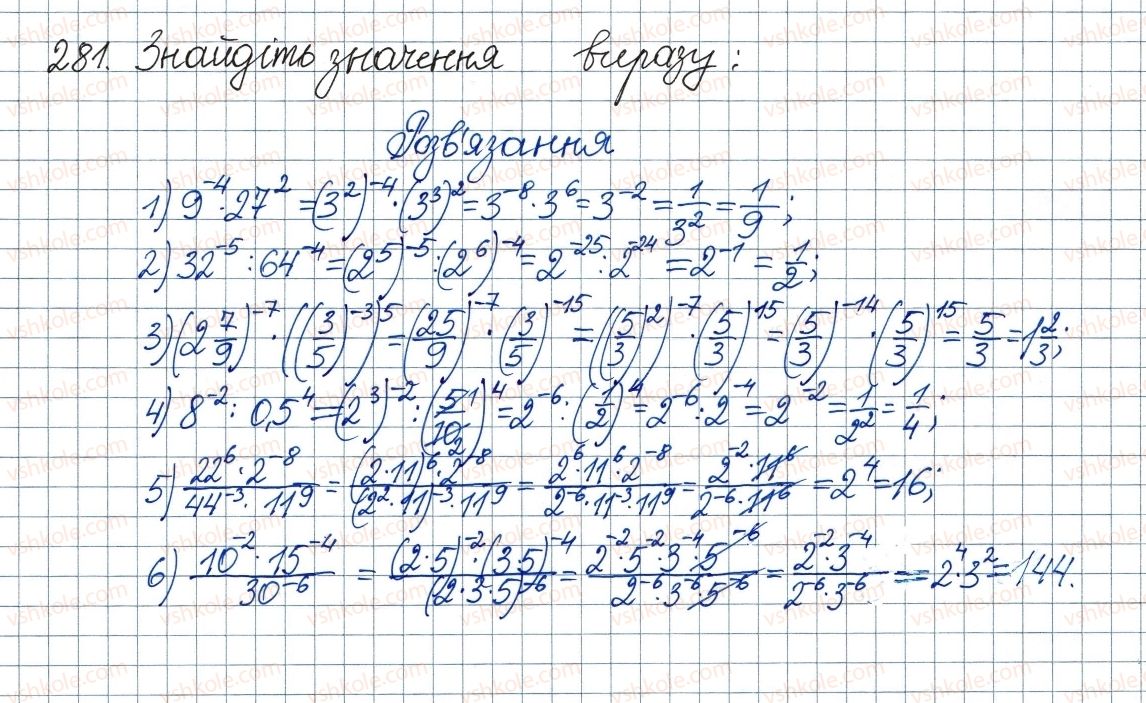 281. Знайдіть значення виразу:
Розв'язання
1) 9⁻⁴·27² = (3²)⁻⁴·(3³)² = 3⁻⁸·3⁶ = 3⁻² = 1/3² = 1/9;
2) 32⁻⁵ : 64⁻⁴ = (2⁵)⁻⁵ : (2⁶)⁻⁴ = 2⁻²⁵ : 2⁻²⁴ = 2⁻¹ = 1/2;
3) (2 7/9)⁻⁷ · ((3/5)⁻³)⁵ = (25/9)⁻⁷ · (3/5)⁻¹⁵ = ((5/3)²)⁻⁷ · (5/3)¹⁵ = (5/3)⁻¹⁴ · (5/3)¹⁵ = 5/3 = 1 2/3;
4) 8⁻² : 0,5⁴ = (2³)⁻² : (5 1/10 2)⁴ = 2⁻⁶ : (1/2)⁴ = 2⁻⁶ : 2⁻⁴ = 2⁻² = 1/2² = 1/4;
5) 22⁶·2⁻⁸/44⁻³·11⁹ = (2·11)⁶·2⁻⁸/(2²·11)⁻³·11⁹ = 2⁶·11⁶·2⁻⁸/2⁻⁶·11⁻³·11⁹ = 2⁻²·11⁶/2⁻⁶·11⁶ = 2⁴ = 16;
6) 10⁻²·15⁻⁴/30⁻⁶ = (2·5)⁻²·(3·5)⁻⁴/(2·3·5)⁻⁶ = 2⁻²·5⁻²·3⁻⁴·5⁻⁶/2⁻⁶·3⁻⁶·5⁻⁶ = 2⁻²·3⁻⁴/2⁻⁶·3⁻⁶ = 2⁴·3² = 144.
vshkole.com